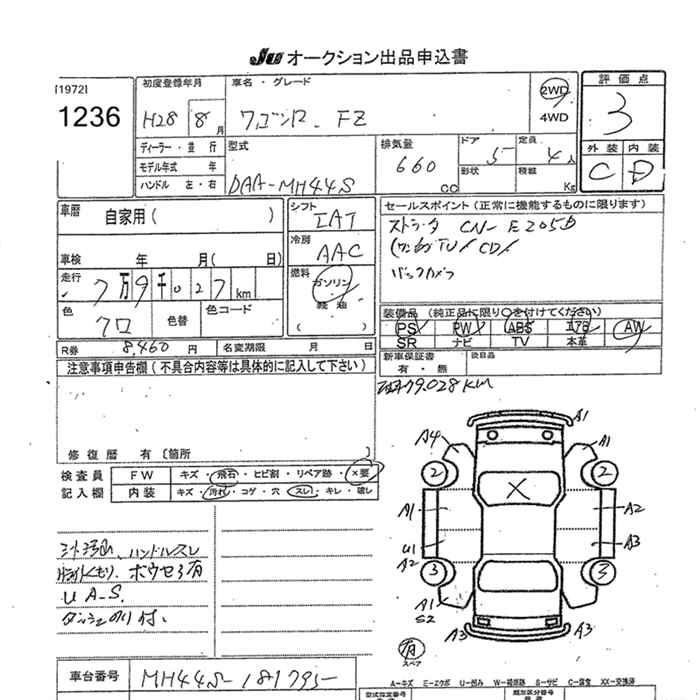 JU オークション出品申込書
[1972]
1236
初度登録年月
H28 8月
車名・グレード
ワゴンR FZ
2WD
4WD
評価点
3
外装 内装
C D
ディーラー・並行
モデル年式 年
ハンドル 左・右
型式
DAA-MH44S
排気量
660 CC
ドア
5
形状
定員
4人
積載
Kg
車歴
自家用( )
車検 年 月( 日)
走行
7万9千027km
色
クロ
色替
色コード
シフト
IAT
冷房
AAC
燃料
ガソリン・軽油
( )
セールスポイント(正常に機能するものに限ります)
ストラーダ CN-E205D
(ワンセグTV/CD/
バックカメラ
装備品(純正品に限り○を付けてください)
PS PW ABS エアB AW
SR ナビ TV 本革
R券 8,460 円
名変期限 月 日
新車保証書
有・無
後日品
79.028KM
注意事項申告欄(不具合内容等は具体的に記入して下さい)
修復暦 有〔箇所 〕
検査員
記入欄
FW キズ・飛石・ヒビ割・リペア跡・×要
内装 キズ・汚れ・コゲ・穴・スレ・キレ・破レ
ハンドルスレ
ホウセキ有
U A-S.
A1
A4 A1
2 2
X
A1 A2
U1 A3
A2
3 3
A1
S2
A3 A3
有
スペア
車台番号
MH44S-181795
A=キズ E=エクボ U=凹み W=補修跡 S=サビ C=腐食 XX=交換済